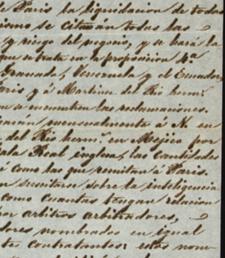 e Paris la liquidacion de todos
ismo de Citarán todas las
y riesgo del peculio, y se hará la
que se trata en la proposicion 4ª
Granada, Venezuela y el Ecuador,
oris y á Martinez del Rio herm.ˢ
se encuentren las reclamaciones.
mensualmente á N. en
del Rio herm.ˢ en Méjico por
Real inglesa, las Cantidades
como las que remitan á Paris.
suscitare sobre la inteligencia
como cuantas tengan relacion
or arbitros arbitradores,
dores nombrados en igual
te contratantes: estos nom-